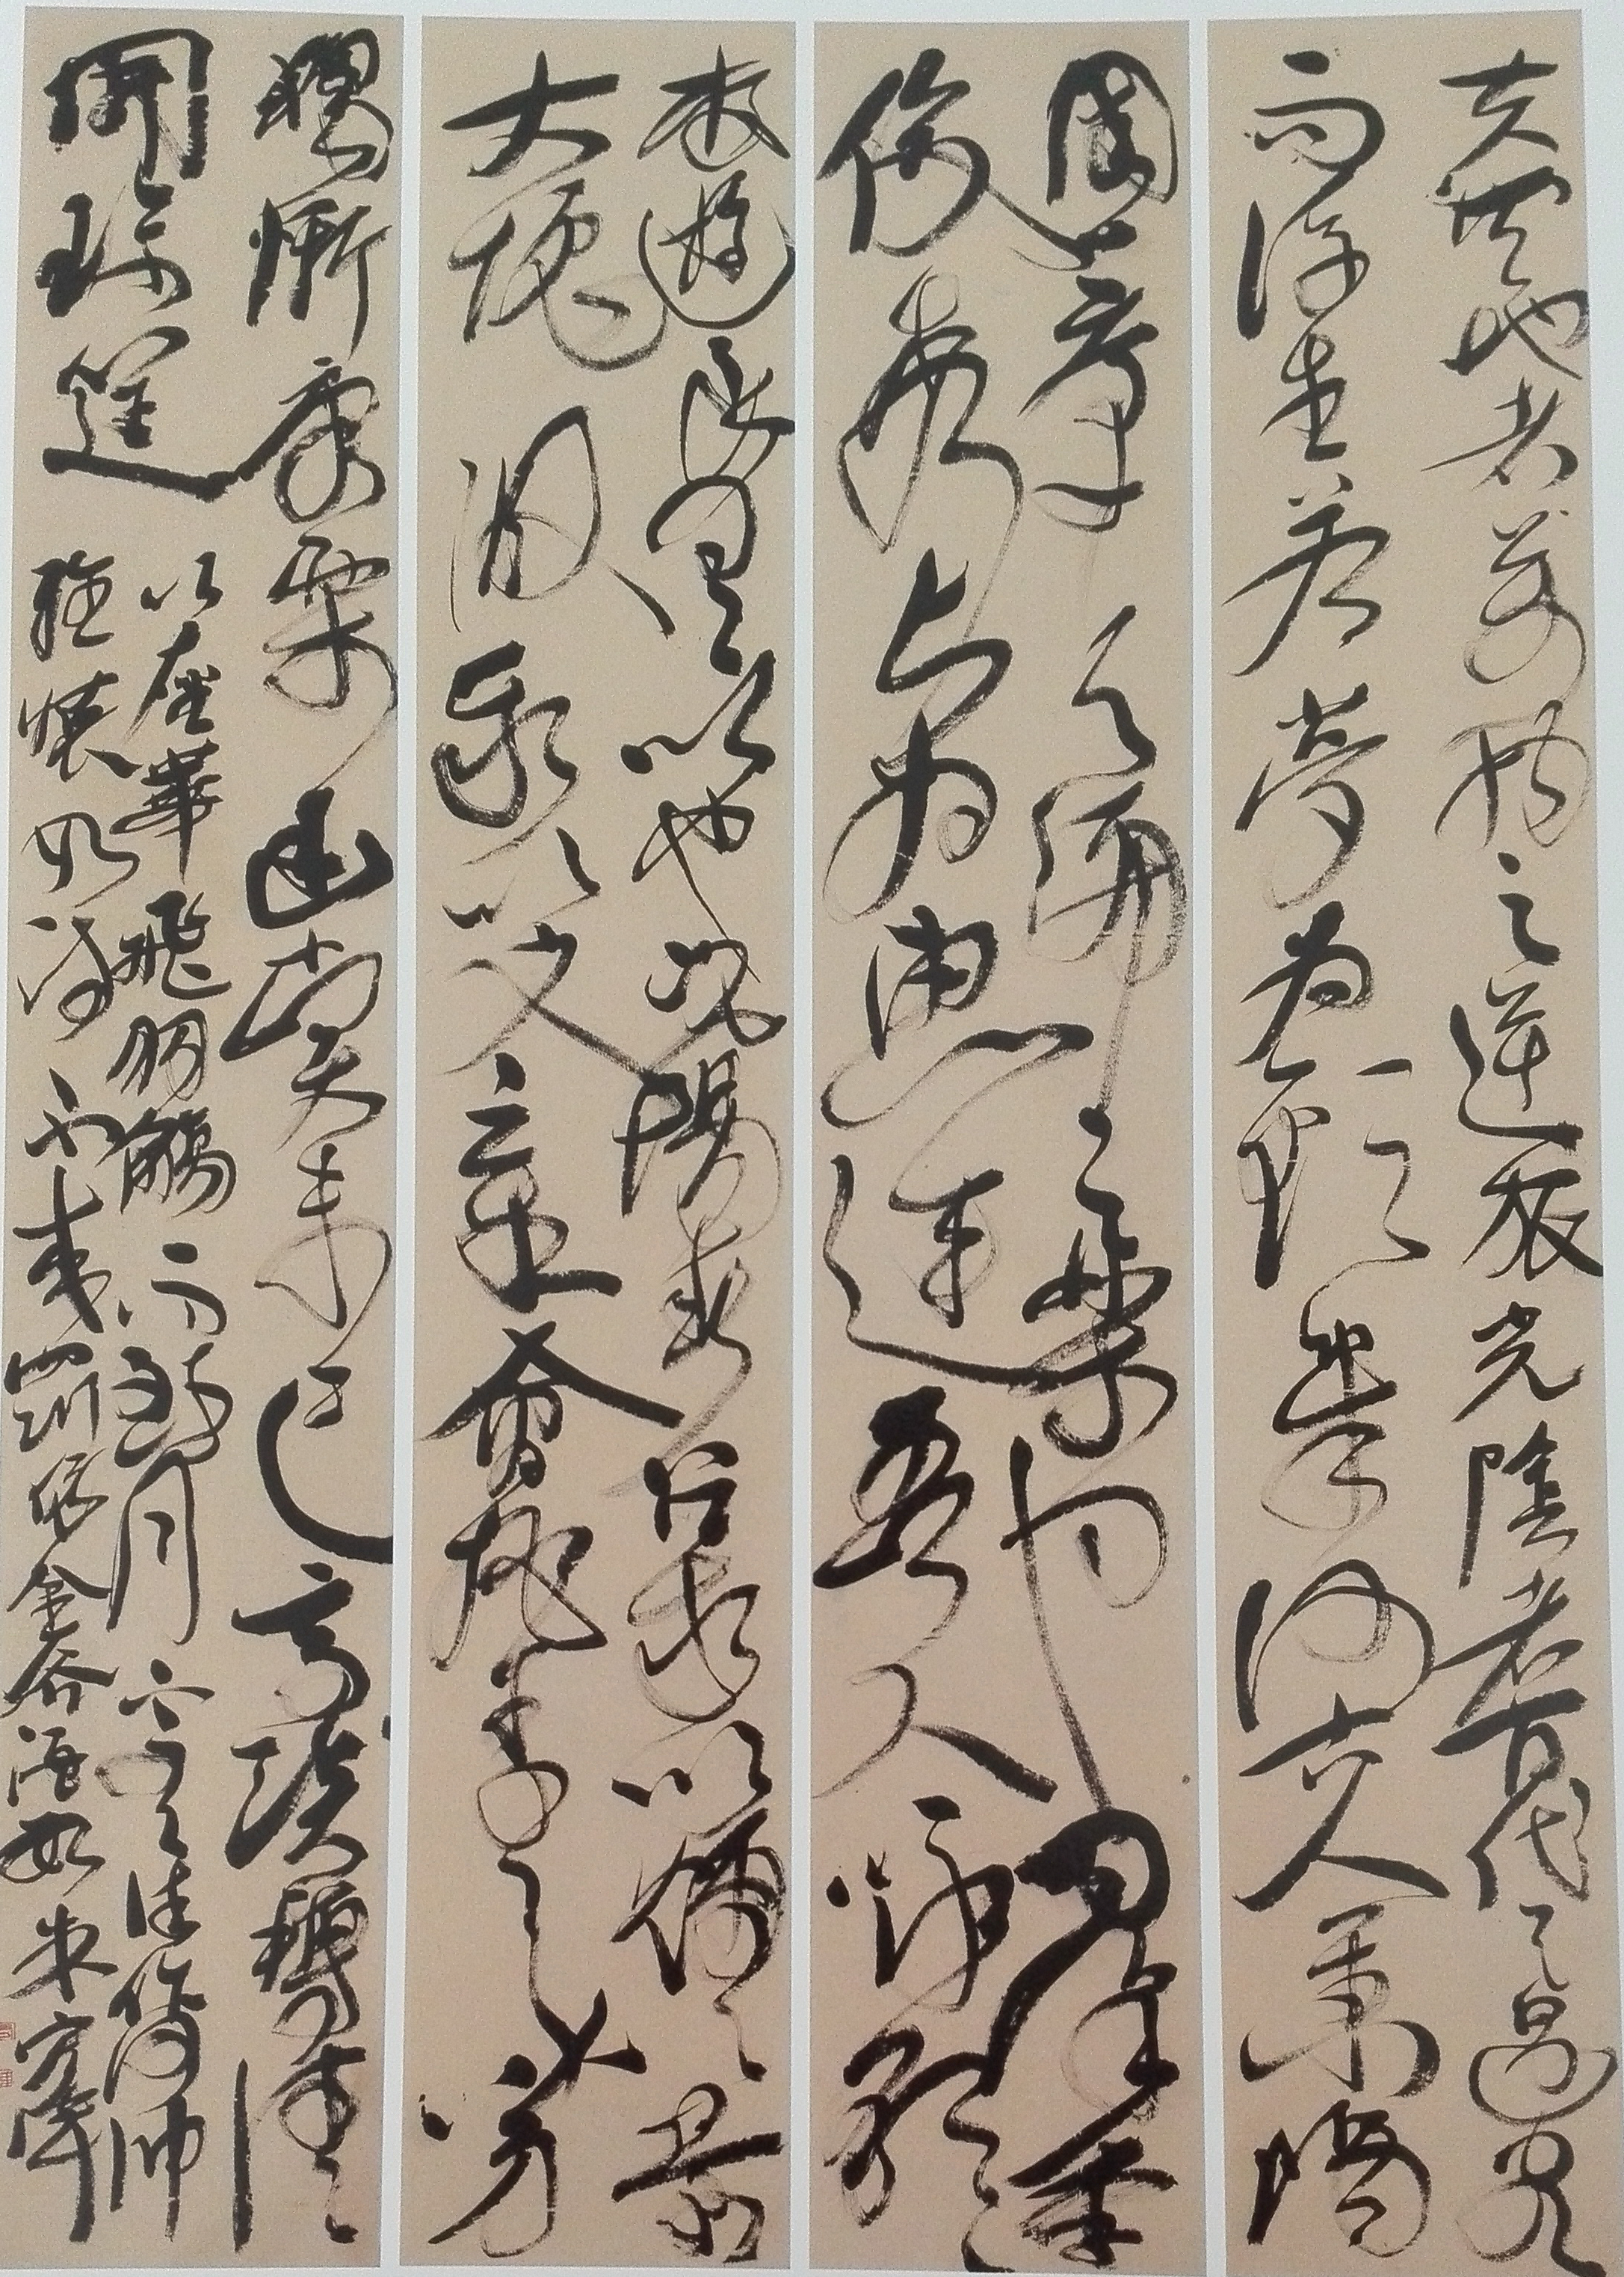 夫天地者萬物之逆旅光陰者百代之過客
而浮生若夢為歡幾何古人秉燭
園序天倫之樂事羣季
俊秀皆為惠連吾人詠歌
夜遊良有以也況陽春召我以煙景
大塊假我以文章會桃李之芳
獨慚康樂幽賞未已高談轉清
開瓊筵
以坐華飛羽觴而醉月不有佳作何伸
雅懷如詩不成罰依金谷酒數